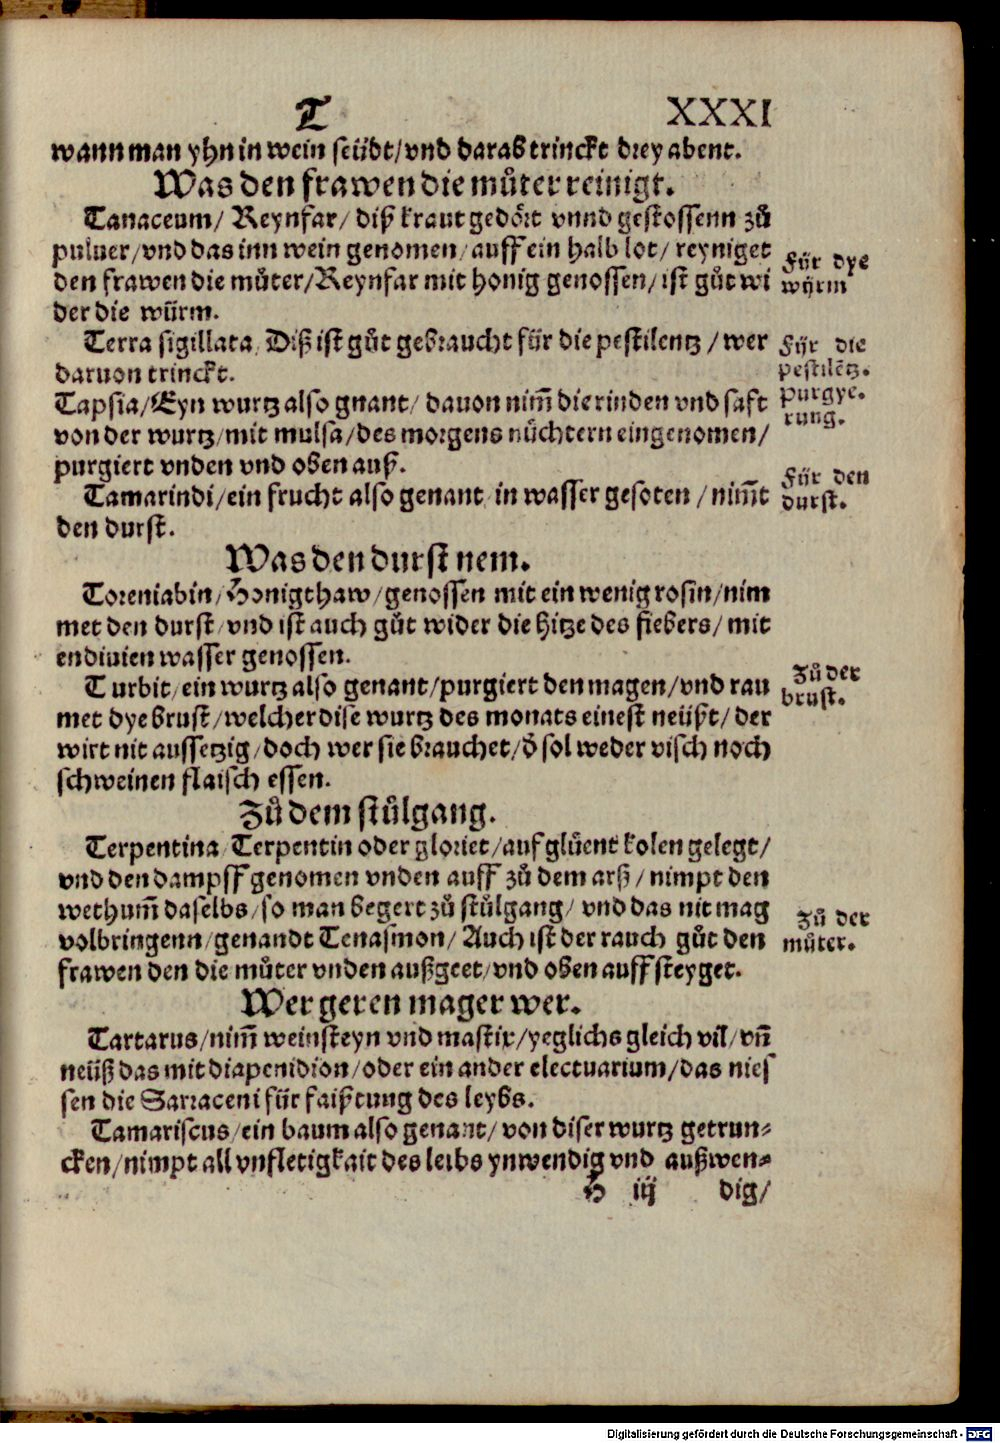 T XXXI
wann man yhn in wein seüdt/vnd darab trinckt drey abent.
Was den frawen die můter reinigt.
Tanaceum/ Reynfar/ diß kraut gedört vnnd gestossenn zů
puluer/vnd das inn wein genomen/auff ein halb lot/ reyniget
den frawen die můter/Reynfar mit honig genossen/ist gůt wi
der die würm.
Für dye
würm
Terra sigillata/ Diß ist gůt gebraucht für die pestilentz/wer
daruon trinckt.
Für die
pestilētz.
Tapsia/Eyn wurtz also gnant/ dauon nim̄ die rinden vnd saft
von der wurtz/mit mulsa/des morgens nüchtern eingenomen/
purgiert vnden vnd oben auß.
purgye-
rung.
Tamarindi/ein frucht also genant/in wasser gesoten/nim̄t
den durst.
Für den
durst.
Was den durst nem.
Toreniabin/Honigthaw/genossen mit ein wenig rosin/nim
met den durst/vnd ist auch gůt wider die hitze des fiebers/mit
endiuien wasser genossen.
Turbit/ein wurtz also genant/purgiert den magen/vnd rau
met dye brust/welcher dise wurtz des monats einest neüßt/der
wirt nit aussetzig/doch wer sie brauchet/d̄ sol weder visch noch
schweinen flaisch essen.
Zů der
brust.
Zů dem stůlgang.
Terpentina/Terpentin oder gloriet/auf glůent kolen gelegt/
vnd den dampff genomen vnden auff zů dem arß/nimpt den
wethum̄ daselbs/so man begert zů stůlgang/ vnd das nit mag
volbringenn/genandt Tenasmon/Auch ist der rauch gůt den
frawen den die můter vnden außgeet/vnd oben auff steyget.
Zů der
můter.
Wer geren mager wer.
Tartarus/nim̄ weinsteyn vnd mastix/yeglichs gleich vil/vn̄
neüß das mit diapenidion/oder ein ander electuarium/das nies
sen die Sarraceni für faißtung des leybs.
Tamariscus/ein baum also genant/von diser wurtz getrun-
cken/nimpt all vnfletigkait des leibs ynwendig vnd außwen-
H iij dig/
Digitalisierung gefördert durch die Deutsche Forschungsgemeinschaft - DFG